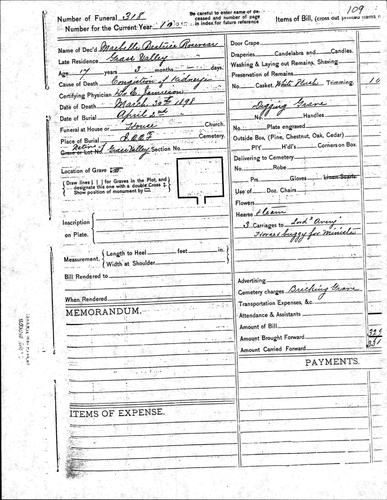 109
Number of Funeral 318
Number for the Current Year
Be careful to enter name of deceased and number of page in index for future reference
Items of Bill, (cross out
Name of Dec'd Beatrice
Late Residence Grass Valley
Age 17 years 3 months days
Cause of Death Congestion of Kidneys
Certifying Physician Dr. C. Jamieson
Date of Death March 30th 1898
Date of Burial April 2nd
Funeral at House or House Church,
Place of Burial I.O.O.F. Cemetery.
Grave or Lot No. Grass Valley Section No.
Location of Grave
Draw lines for Graves in the Plot, and designate this one with a double Cross
Show position of monument by
Inscription
on Plate.
Measurement, Length to Heel feet in.
Width at Shoulder
Bill Rendered to
When Rendered
MEMORANDUM.
ITEMS OF EXPENSE.
Door Crape
Candelabra and Candles.
Washing & Laying out Remains, Shaving
Preservation of Remains
No. Casket, White Plush Trimming,
Digging Grave
No. Handles
No. Plate engraved
Outside Box, (Pine, Chestnut, Oak, Cedar)
Pl'f H'd's Corners on Box.
Delivering to Cemetery
No. Robe
Pm Gloves Linen Scarfs
Use of Doz. Chairs
Flowers
Hearse
3 Carriages to
buggy for Minister
Advertising
Cemetery charges Bricking Grave
Transportation Expenses, &c.
Attendance & Assistants
Amount of Bill
Amount Brought Forward
Amount Carried Forward
PAYMENTS.